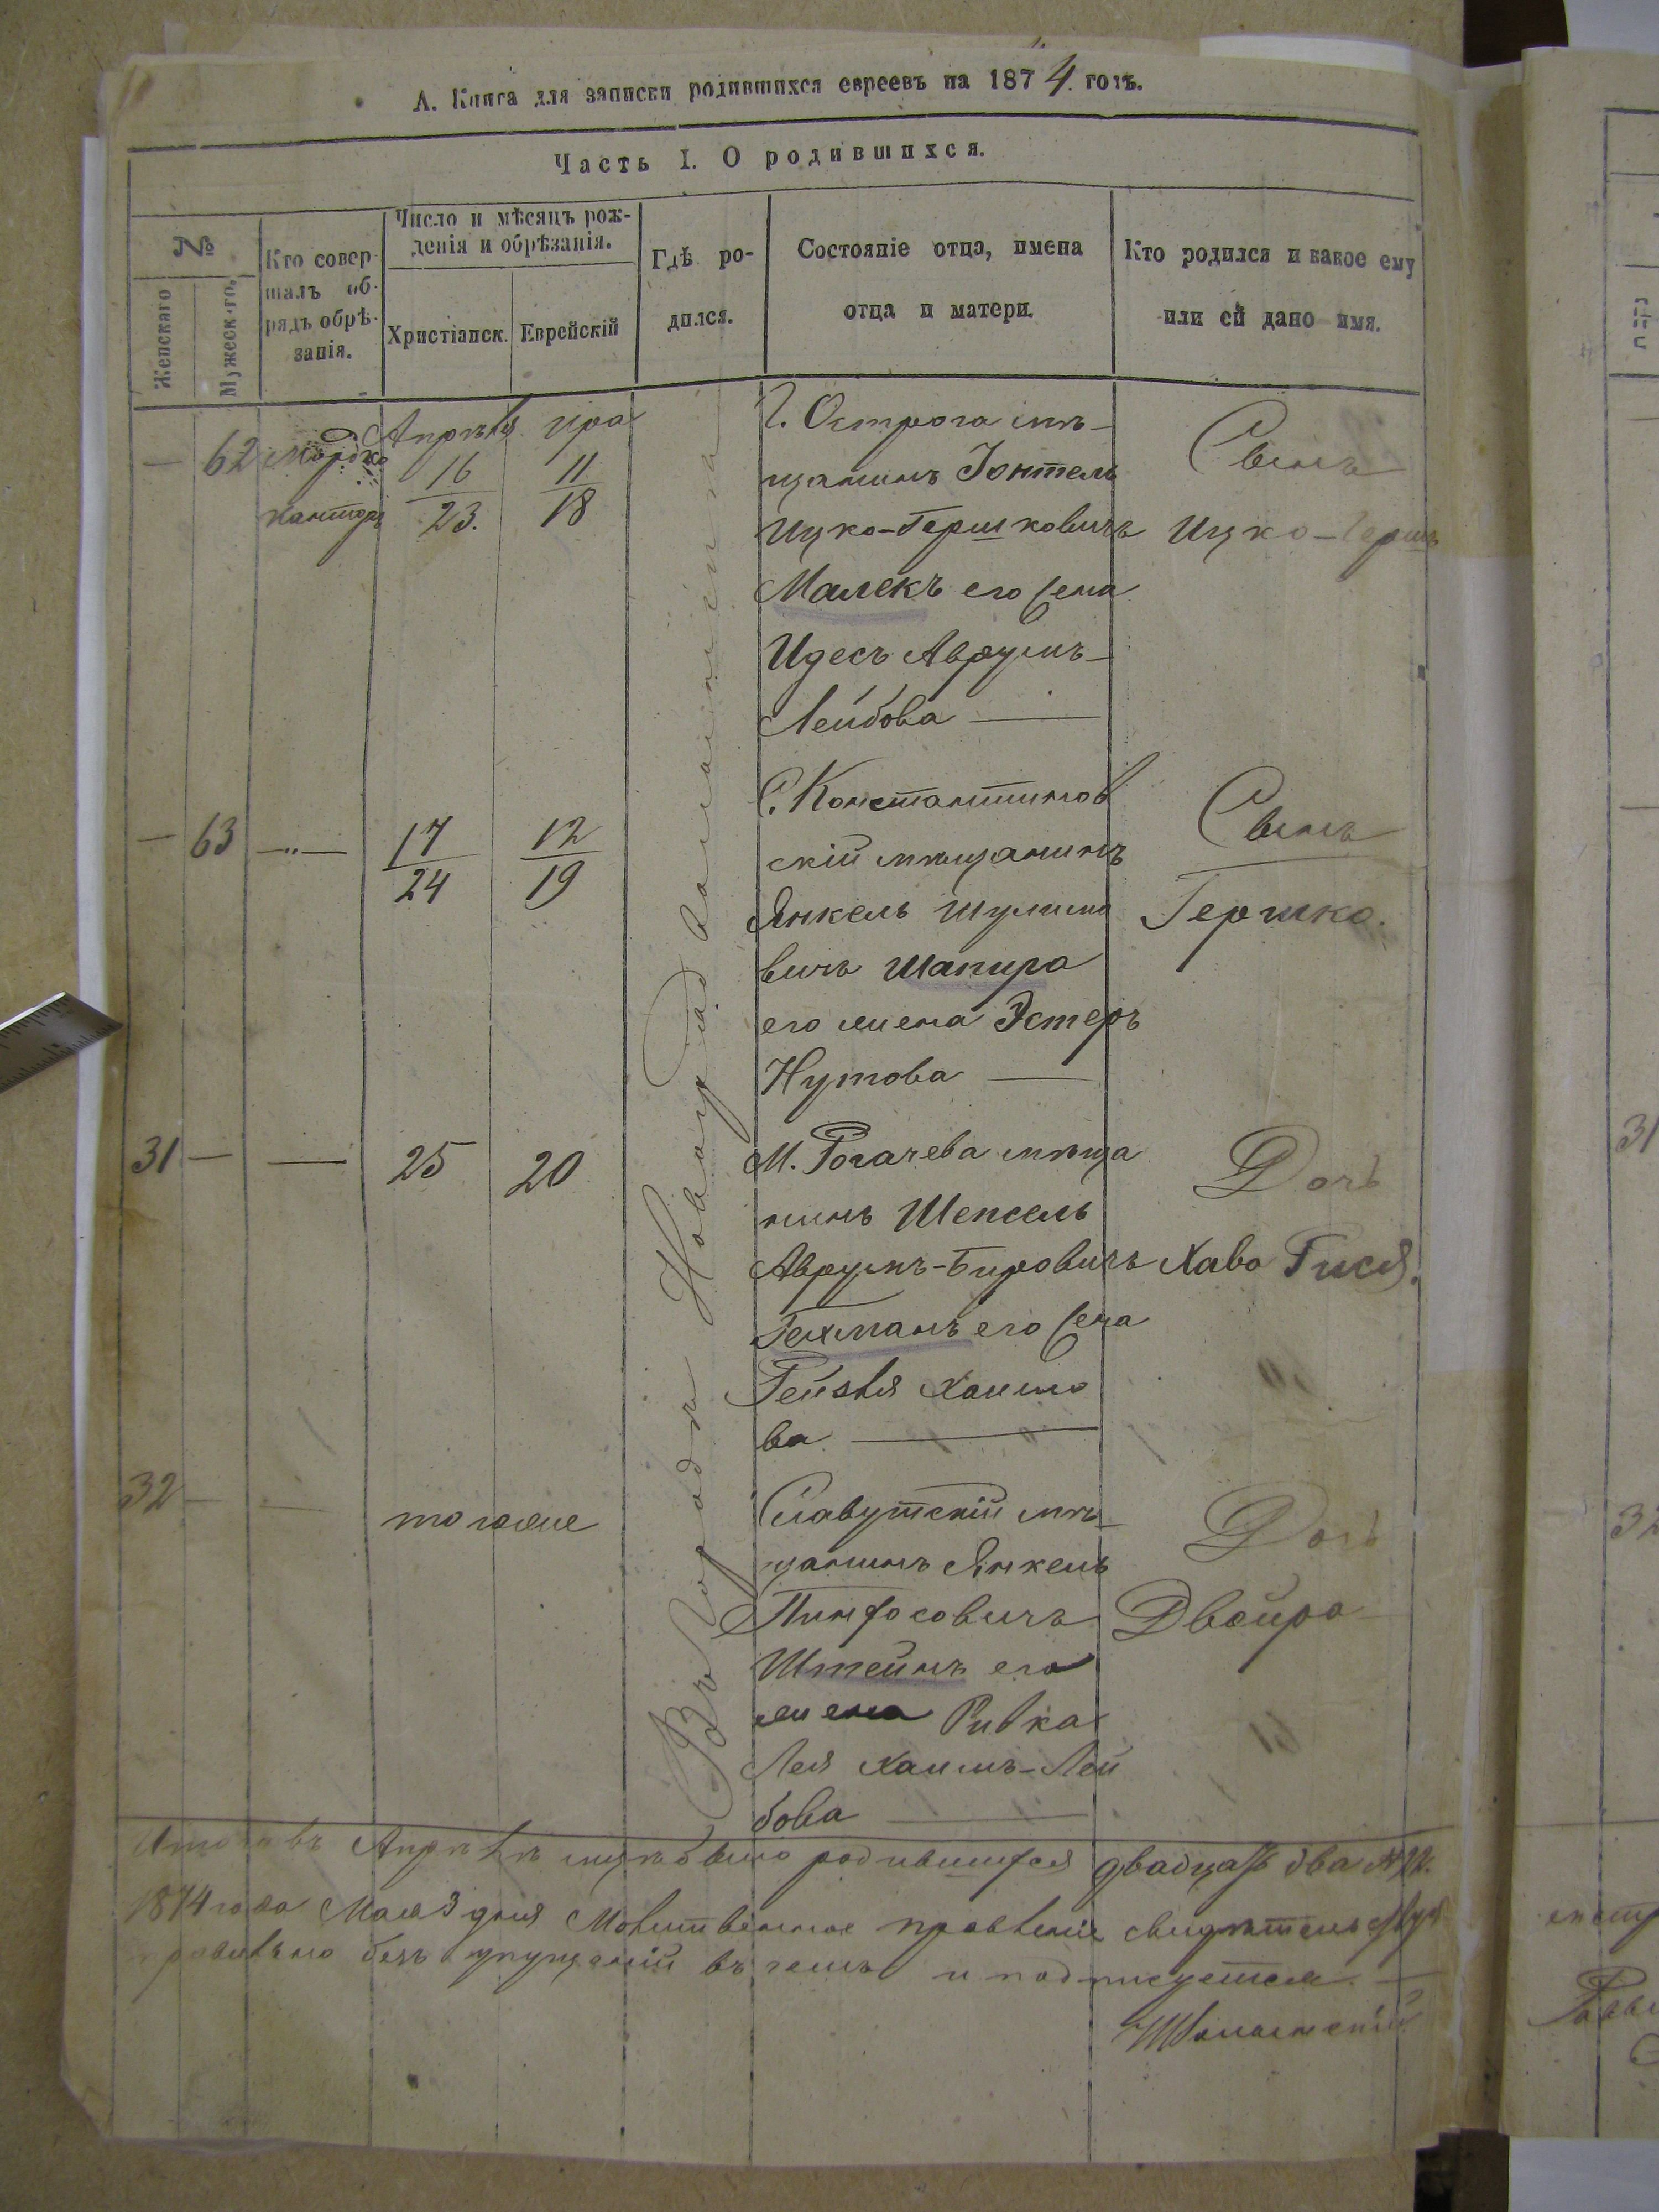 А. Книга для записки родившихся евреевъ на 1874 годъ.
Часть I. О родившихся.
№
Женскаго
Мужеск-го.
Кто совер-
шалъ об-
рядъ обрѣ-
занія.
Число и мѣсяцъ рож-
денія и обрѣзанія.
Христіанск.
Еврейскій
Гдѣ ро-
дился.
Состояніе отца, имена
отца и матери.
Кто родился и какое ему
или ей дано имя.
— 62 Мордко
Кантор
Апрѣля
16
23.
Ира
11
18
Г. Острога мѣ-
щанинъ Іонтель
Ицко-Гершковичъ
Малекъ его жена
Идесъ Аврумъ-
Лейбова —
Сынъ
Ицко-Гершъ
— 63 —"—
17
24
12
19
С. Константинов
скій мѣщанинъ
Янкель Шулимо
вичъ Шапира
его жена Эстеръ
Нутова —
Сынъ
Гершко.
31 — — 25 20
М. Рогачева мѣща
нинъ Шепсель
Аврумъ-Бировичъ
Гехманъ его жена
Рейзля Хаимо
ва —
Дочь
Хава Гися.
32 — — того же
Славутскій мѣ-
щанинъ Янкель
Пинхосовичъ
Штейнъ его
жена Ривка
Лея Хаимъ-Лей
бова —
Дочь
Двойра
Въ городѣ Новоградволынскѣ
Итого въ Апрѣлѣ родившихся двадцать два № 22.
1874 года Мая 3 дня Молитвенное правленіе
правильно безъ упущеній въ чемъ и подписуется. —